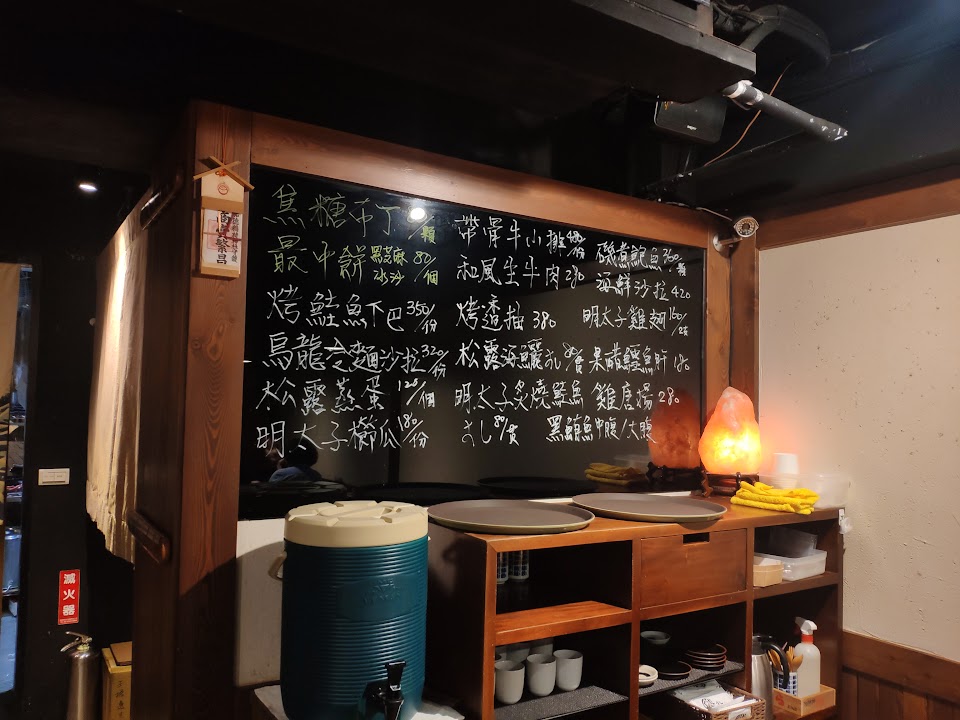 焦糖布丁 /顆
最中餅 黑芝麻冰沙 80/個
烤鮭魚下巴 350/份
烏龍冷麵沙拉 320/份
松露蒸蛋 120/個
明太子櫛瓜 180/份
帶骨牛小排 480/份
和風生牛肉 280
烤透抽 380
松露海鱺さし 80/貫
明太子炙燒鮭魚
さし 80/貫
磯煮鮑魚 360/顆
海鮮沙拉 420
明太子雞翅 160/
果醋鱈魚肝 180
雞唐揚 280
黑鮪魚中腹/大腹
繁昌
滅火器